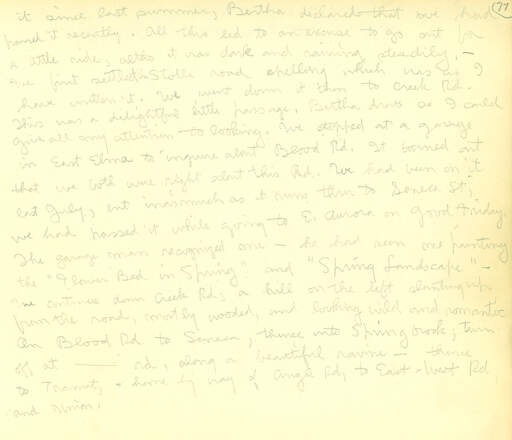 77
it since last summer, Bertha declared that we had
passed it recently. All this led to an excuse to go out for
a little ride, altho it was dark and raining steadily. –
We first settled the Stolle road spelling which was as I
have written it. We went down it then to Creek Rd.
This was a delightful little passage, Bertha drove so I could
give all my attention to looking. We stopped at a garage
in East Elma to inquire about Blood Rd. It turned out
that we both were right about this Rd. We had been on it
last July, but inasmuch as it runs thru to Seneca St,
we had passed it while going to E. Aurora on Good Friday.
The garage man recognized me – he had seen me painting
the "Flower Bed in Spring" and "Spring Landscape" –
We continued down Creek Rd; a hill on the left slanting up
from the road, mostly wooded, and looking wild and romantic.
On Blood Rd to Seneca, thence into Springbrook, turn
off at —— rd, along a beautiful ravine – thence
to Transit, & home by way of Angle Rd, to East & West Rd,
and Union.